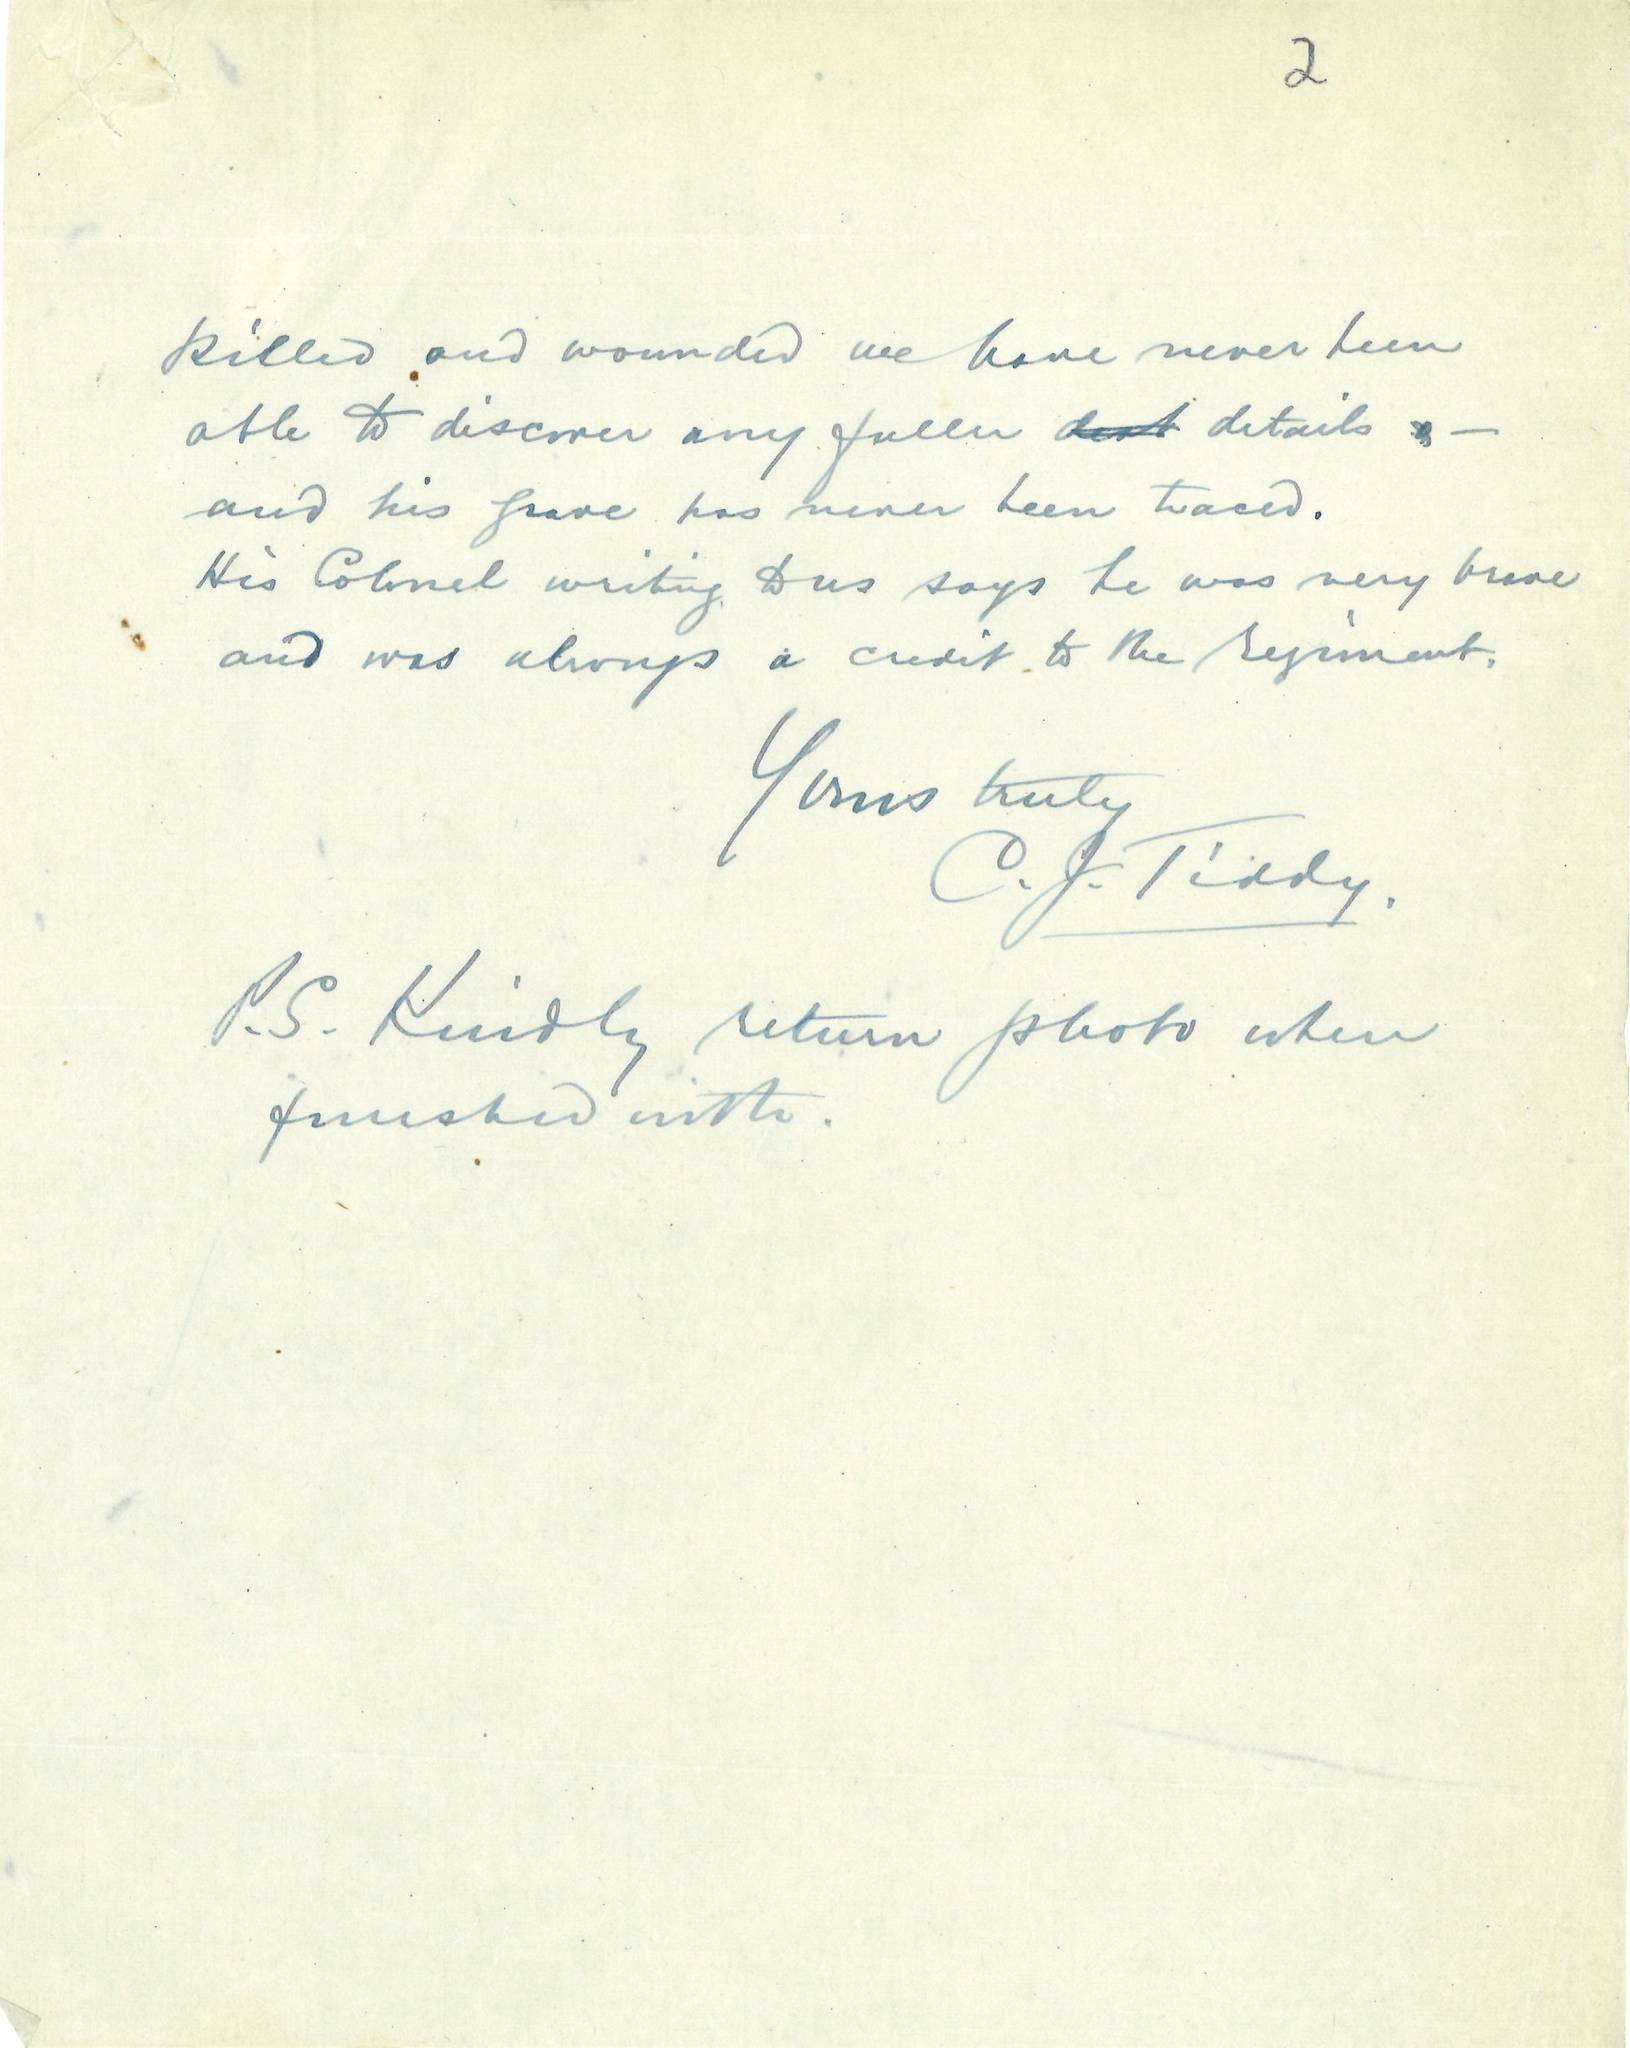 2
killed and wounded we have never been
able to discover any fuller details —
and his grave has never been traced.
His Colonel writing to us says he was very brave
and was always a credit to the regiment.
Yours truly
C. J. Tiddy.
P.S. Kindly return photo when
finished with.